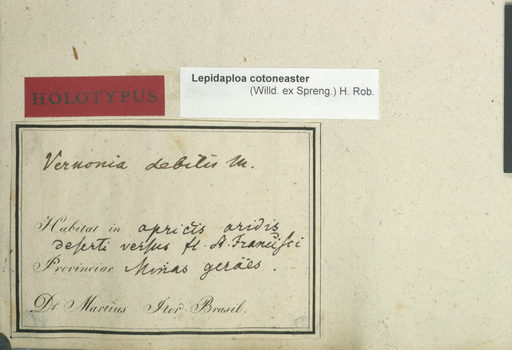 HOLOTYPUS
Lepidaploa cotoneaster
(Willd. ex Spreng.) H. Rob.
Vernonia debilis M.
Habitat in apricis aridis
deserti versus fl. S. Francisci
Provinciae Minas geraës.
Dr Martius Iter Brasil.